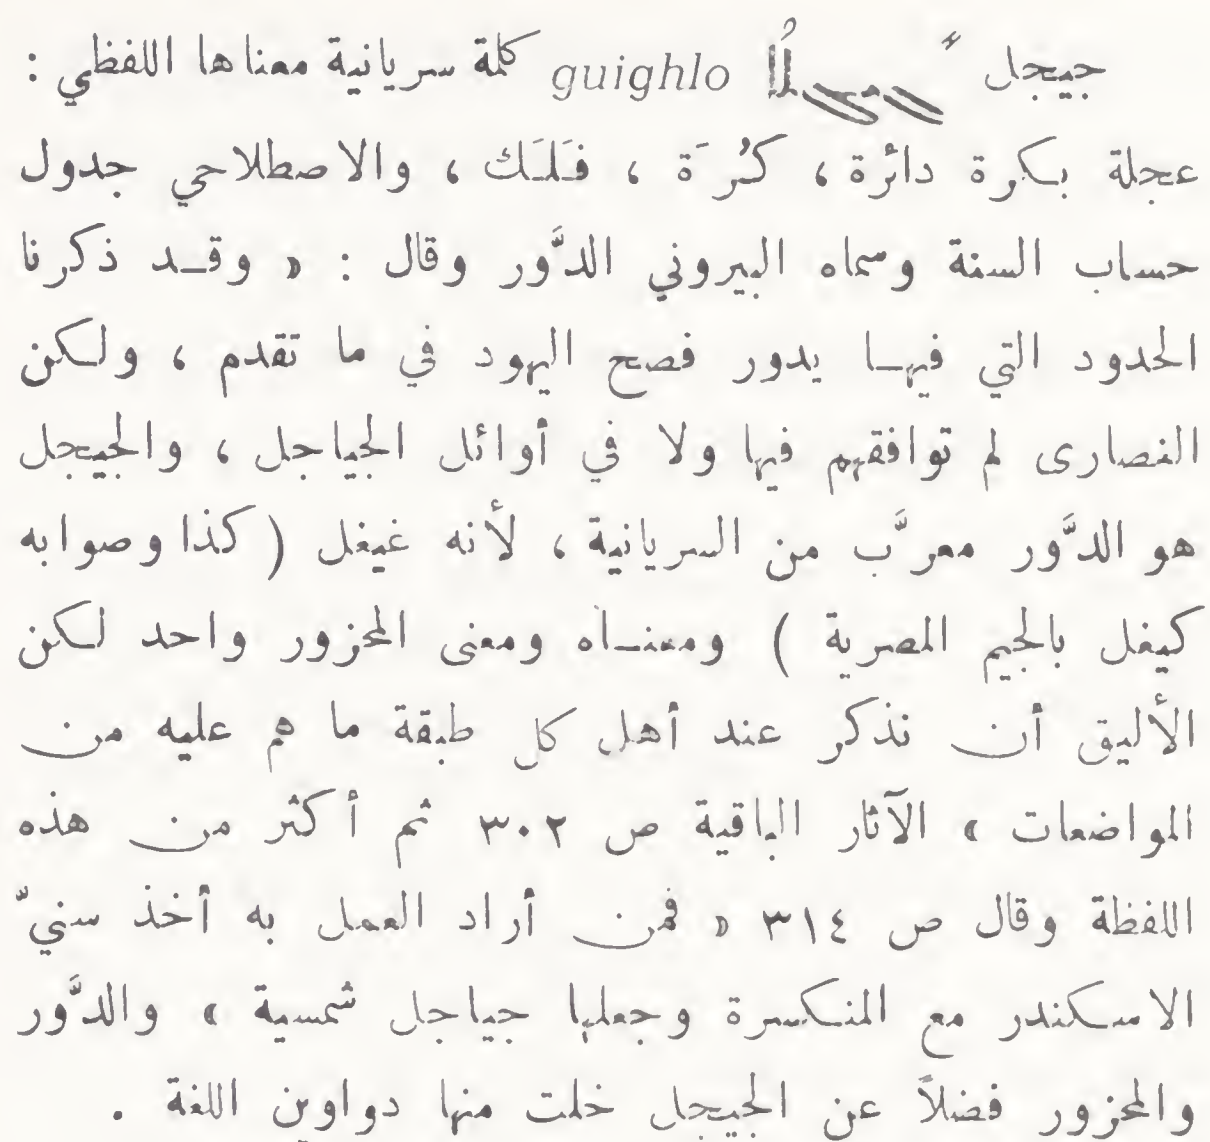 جيجل ܓܝܓܠܐ guighlo كلمة سريانية معناها اللفظي :
عجلة بكرة دائرة ، كُرَة ، فَلَك ، والاصطلاحي جدول
حساب السنة وسماه البيروني الدَّور وقال : « وقد ذكرنا
الحدود التي فيها يدور فصح اليهود في ما تقدم ، ولكن
النصارى لم توافقهم فيها ولا في أوائل الجياجل ، والجيجل
هو الدَّور معرَّب من السريانية ، لأنه غيغل ( كذا وصوابه
كيغل بالجيم المصرية ) ومعناه ومعنى المحزور واحد لكن
الأليق أن نذكر عند أهل كل طبقة ما هم عليه من
المواضعات » الآثار الباقية ص ٣٠٢ ثم أكثر من هذه
اللفظة وقال ص ٣١٤ « فمن أراد العمل به أخذ سنيّ
الاسكندر مع المنكسرة وجعلها جياجل شمسية » والدَّور
والمحزور فضلاً عن الجيجل خلت منها دواوين اللغة .